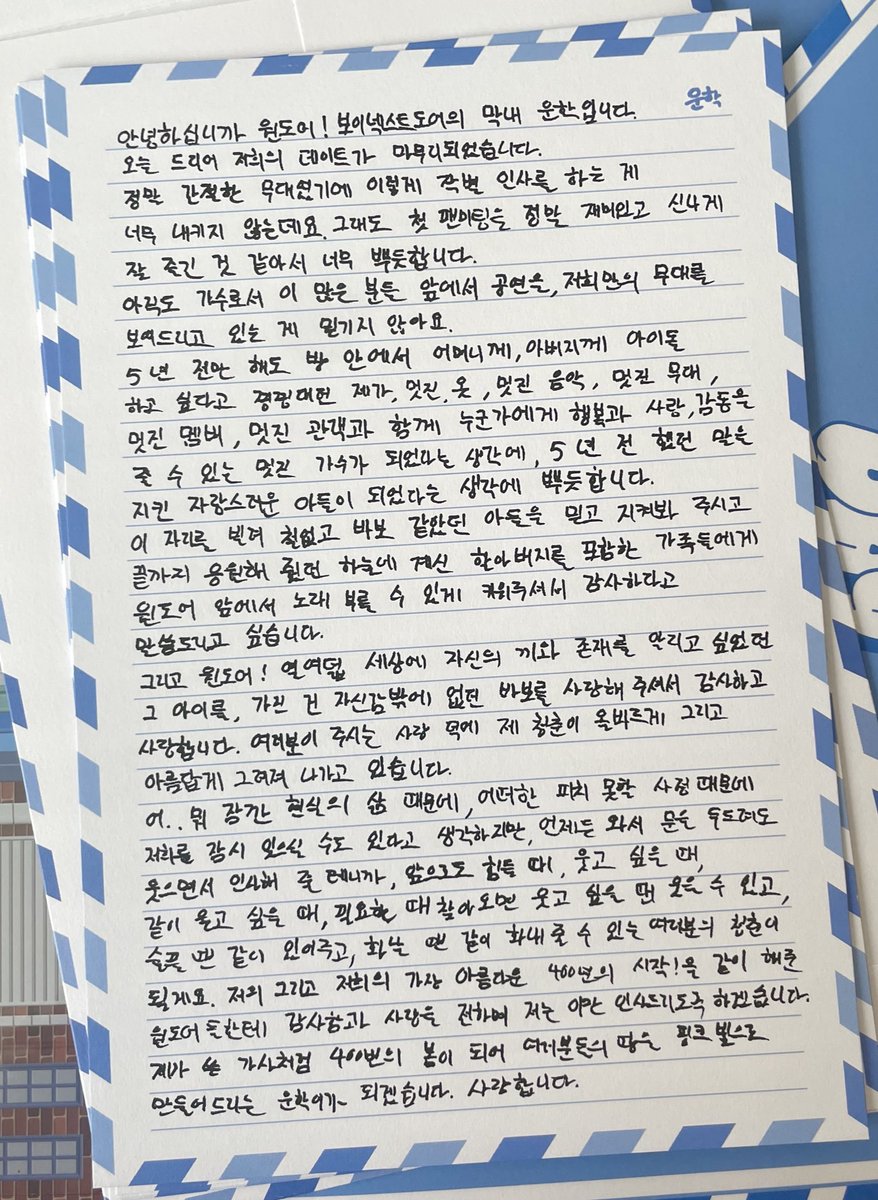 운학
안녕하십니까 원도어! 보이넥스트도어의 막내 운학입니다.
오늘 드디어 저희의 데이트가 마무리되었습니다.
정말 간절한 무대였기에 이렇게 작별 인사를 하는 게
너무 내키지 않는데요. 그래도 첫 팬미팅을 정말 재미있고 신나게
잘 즐긴 것 같아서 너무 뿌듯합니다.
아직도 가수로서 이 많은 분들 앞에서 공연을, 저희만의 무대를
보여드리고 있는 게 믿기지 않아요.
5년 전만 해도 방 안에서 어머니께, 아버지께 아이돌
하고 싶다고 떵떵대던 제가, 멋진 옷, 멋진 음악, 멋진 무대,
멋진 멤버, 멋진 관객과 함께 누군가에게 행복과 사랑, 감동을
줄 수 있는 멋진 가수가 되었다는 생각에, 5년 전 했던 말을
지킨 자랑스러운 아들이 되었다는 생각에 뿌듯합니다.
이 자리를 빌려 철없고 바보 같았던 아들을 믿고 지켜봐 주시고
끝까지 응원해 줬던 하늘에 계신 할아버지를 포함한 가족들에게
원도어 앞에서 노래 부를 수 있게 키워주셔서 감사하다고
말씀드리고 싶습니다.
그리고 원도어! 열여덟 세상에 자신의 끼와 존재를 알리고 싶었던
그 아이를, 가진 건 자신감밖에 없던 바보를 사랑해 주셔서 감사하고
사랑합니다. 여러분이 주시는 사랑 덕에 제 청춘이 올바르게 그리고
아름답게 그려져 나가고 있습니다.
어.. 뭐 잠깐 현실의 삶 때문에, 어떠한 피치 못할 사정 때문에
저희를 잠시 잊으실 수도 있다고 생각하지만, 언제든 와서 문을 두드려도
웃으면서 인사해 줄 테니까, 앞으로도 힘들 때, 웃고 싶을 때,
같이 울고 싶을 때, 필요할 때 찾아오면 웃고 싶을 땐 웃을 수 있고,
슬플 땐 같이 있어주고, 화날 땐 같이 화내 줄 수 있는 여러분의 청춘이
될게요. 저의 그리고 저희의 가장 아름다운 400년의 시작!을 같이 해준
원도어 들한테 감사함과 사랑을 전하며 저는 이만 인사드리도록 하겠습니다.
제가 쓴 가사처럼 400번의 봄이 되어 여러분들의 땅을 핑크빛으로
만들어드리는 운학이가 되겠습니다. 사랑합니다.